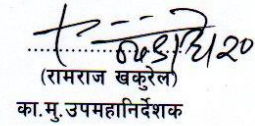 (रामराज खकुरेल)
का.मु.उपमहानिर्देशक